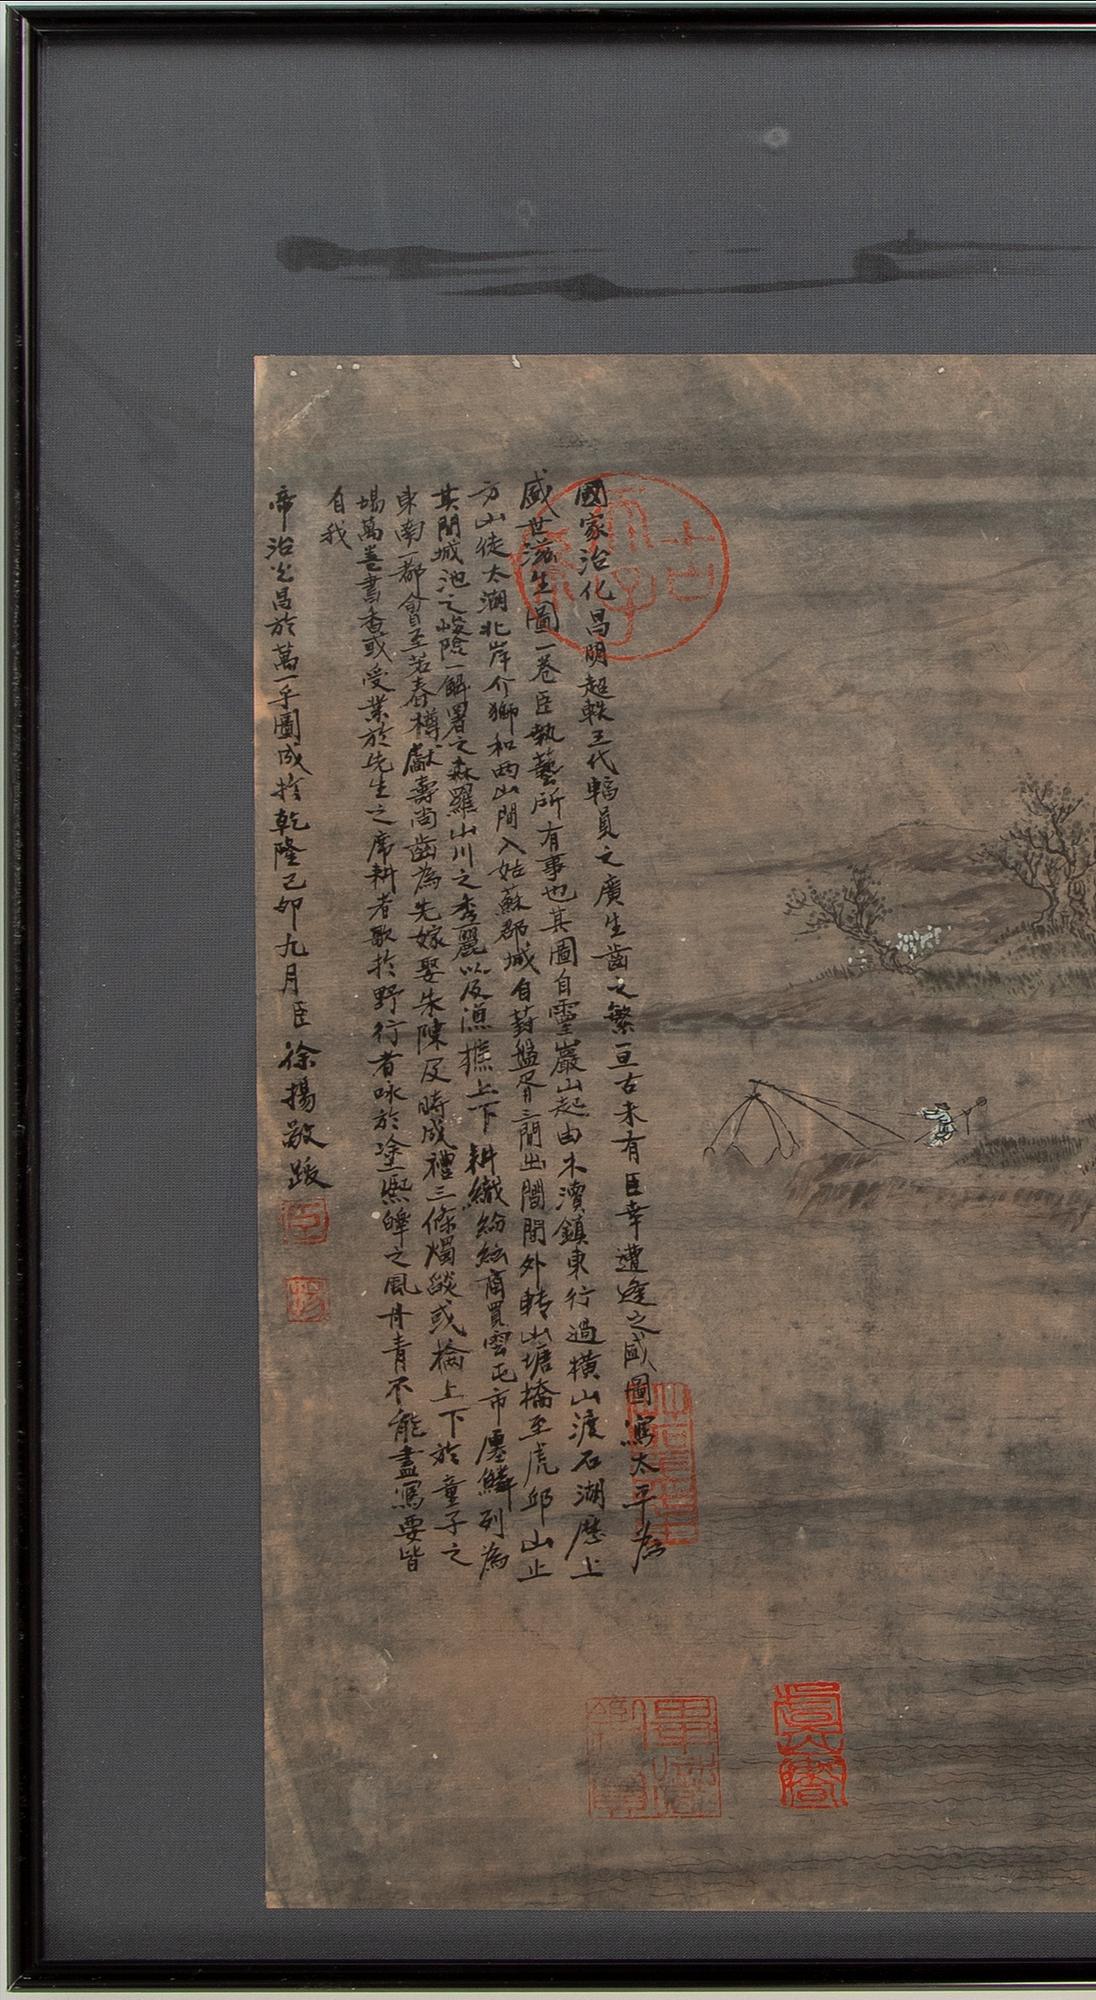 國家治化昌明超軼三代幅員之廣生齒之繁亘古未有臣幸遭逢之盛圖寫太平為
盛世滋生圖一卷臣執藝所有事也其圖自靈巖山起由木瀆鎮東行過橫山渡石湖歷上
方山從太湖北岸介獅和兩山間入姑蘇郡城自葑盤胥三門出閶門外轉山塘橋至虎邱山止
其間城池之峻險廨署之森羅山川之秀麗以及漁樵上下耕織紛紜商賈雲屯市廛鱗列為
東南一都會至若春樽獻壽尚齒為先嫁娶朱陳及時成禮三條燭燄或掄上下於童子之
場萬卷書香或受業於先生之席耕者歌於野行者咏於塗熙皞之風丹青不能盡寫要皆
自我
帝治光昌於萬一乎圖成於乾隆己卯九月臣徐揚敬跋